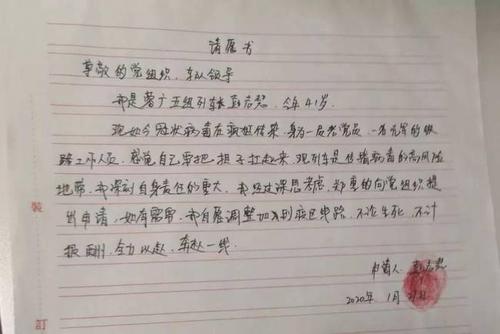 请愿书
尊敬的党组织、车队领导
我是著广五组列车长 今年41岁
现如今冠状病毒在疯狂传染,身为一名老党员,一名光荣的铁
路工作人员,感觉自己要把担子扛起来,现列车是传播病毒的高风险
地带,我深刻自身责任的重大,我经过深思考虑,郑重的向党组织提
出申请,如有需要,我自愿调整加入到疫区电路,不论生死,不计
报酬,全力以赴,奔赴一线。
申请人
2020年1月 日
装
訂